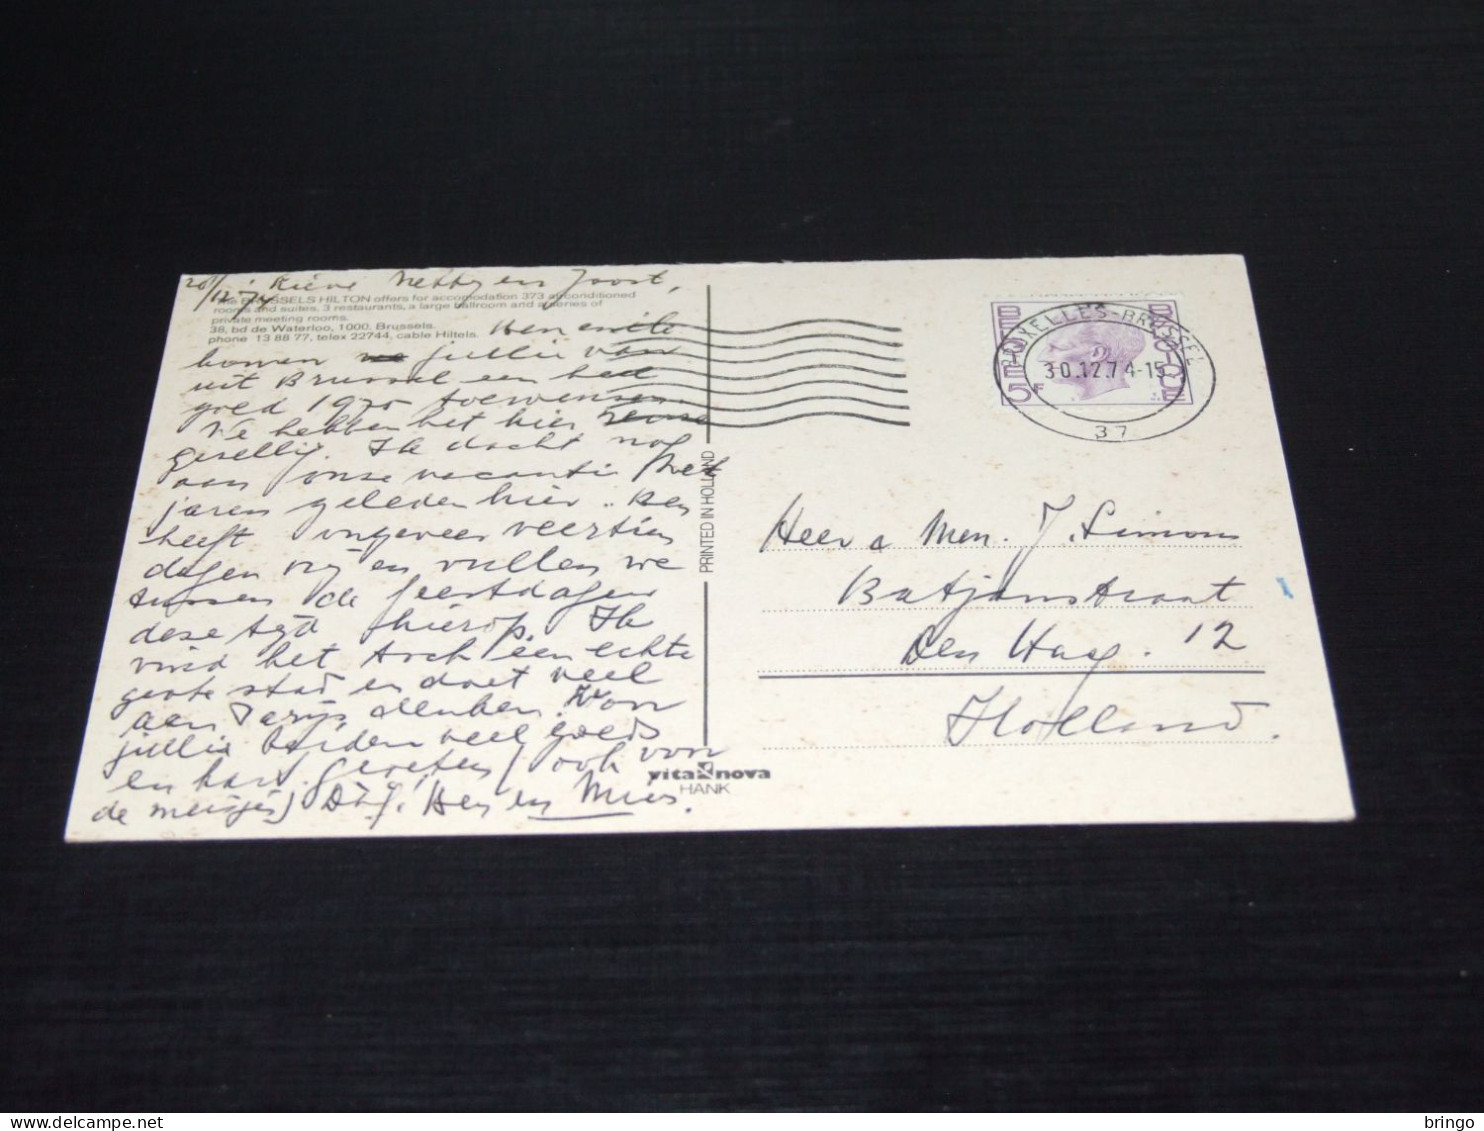 Lieve Netty en Joost,
12.74
The BRUSSELS HILTON offers for accomodation 373 airconditioned
rooms and suites, 3 restaurants, a large ballroom and a series of
private meeting rooms.
38, bd de Waterloo, 1000. Brussels.
phone 13 88 77, telex 22744, cable Hiltels.
Hen en ik
komen jullie van
uit Brussel een heel
goed 1975 toewensen
We hebben het hier reuze
gezellig. Ik dacht nog
aan onze vacantie met
jaren geleden hier. Hen
heeft ongeveer veertien
dagen vrij en vullen we
tussen de feestdagen
deze tijd hierop. Ik
vind het toch een echte
grote stad en doet veel
aan Parijs denken. Voor
jullie beiden veel goeds
en hart. groeten (ook van
de meisjes) Dag! Hen en Mies.
PRINTED IN HOLLAND
vita nova
HANK
BRUXELLES-BRUSSEL
30.12.74-15
37
BELGIQUE
BELGIË
5F
Heer & Mevr. J. Simons
Batjanstraat
Den Haag. 12
Holland.
bringo